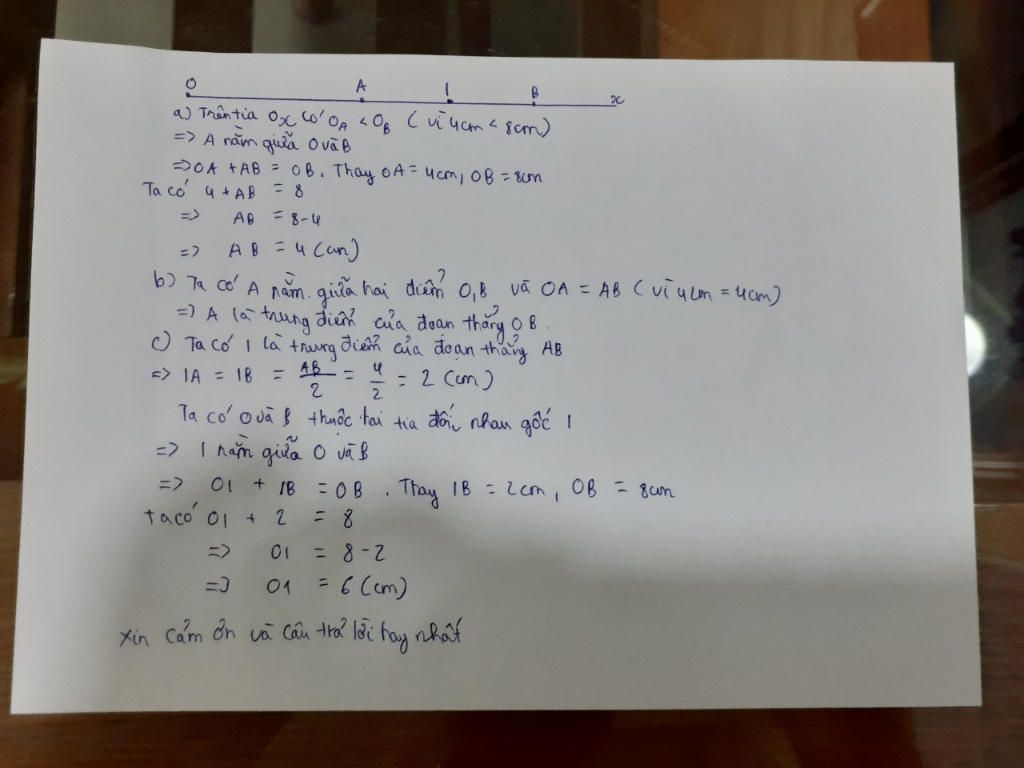 O A I B x
a) Trên tia Ox có OA < OB ( vì 4cm < 8cm)
=> A nằm giữa O và B
=> OA + AB = OB. Thay OA = 4cm, OB = 8cm
Ta có 4 + AB = 8
=> AB = 8-4
=> AB = 4 (cm)
b) Ta có A nằm giữa hai điểm O,B và OA = AB ( vì 4cm = 4cm)
=> A là trung điểm của đoạn thẳng OB.
c) Ta có I là trung điểm của đoạn thẳng AB
=> IA = IB = AB/2 = 4/2 = 2 (cm)
Ta có O và B thuộc hai tia đối nhau gốc I
=> I nằm giữa O và B
=> OI + IB = OB . Thay IB = 2cm, OB = 8cm
ta có OI + 2 = 8
=> OI = 8-2
=> OI = 6 (cm)
Xin cảm ơn và câu trả lời hay nhất